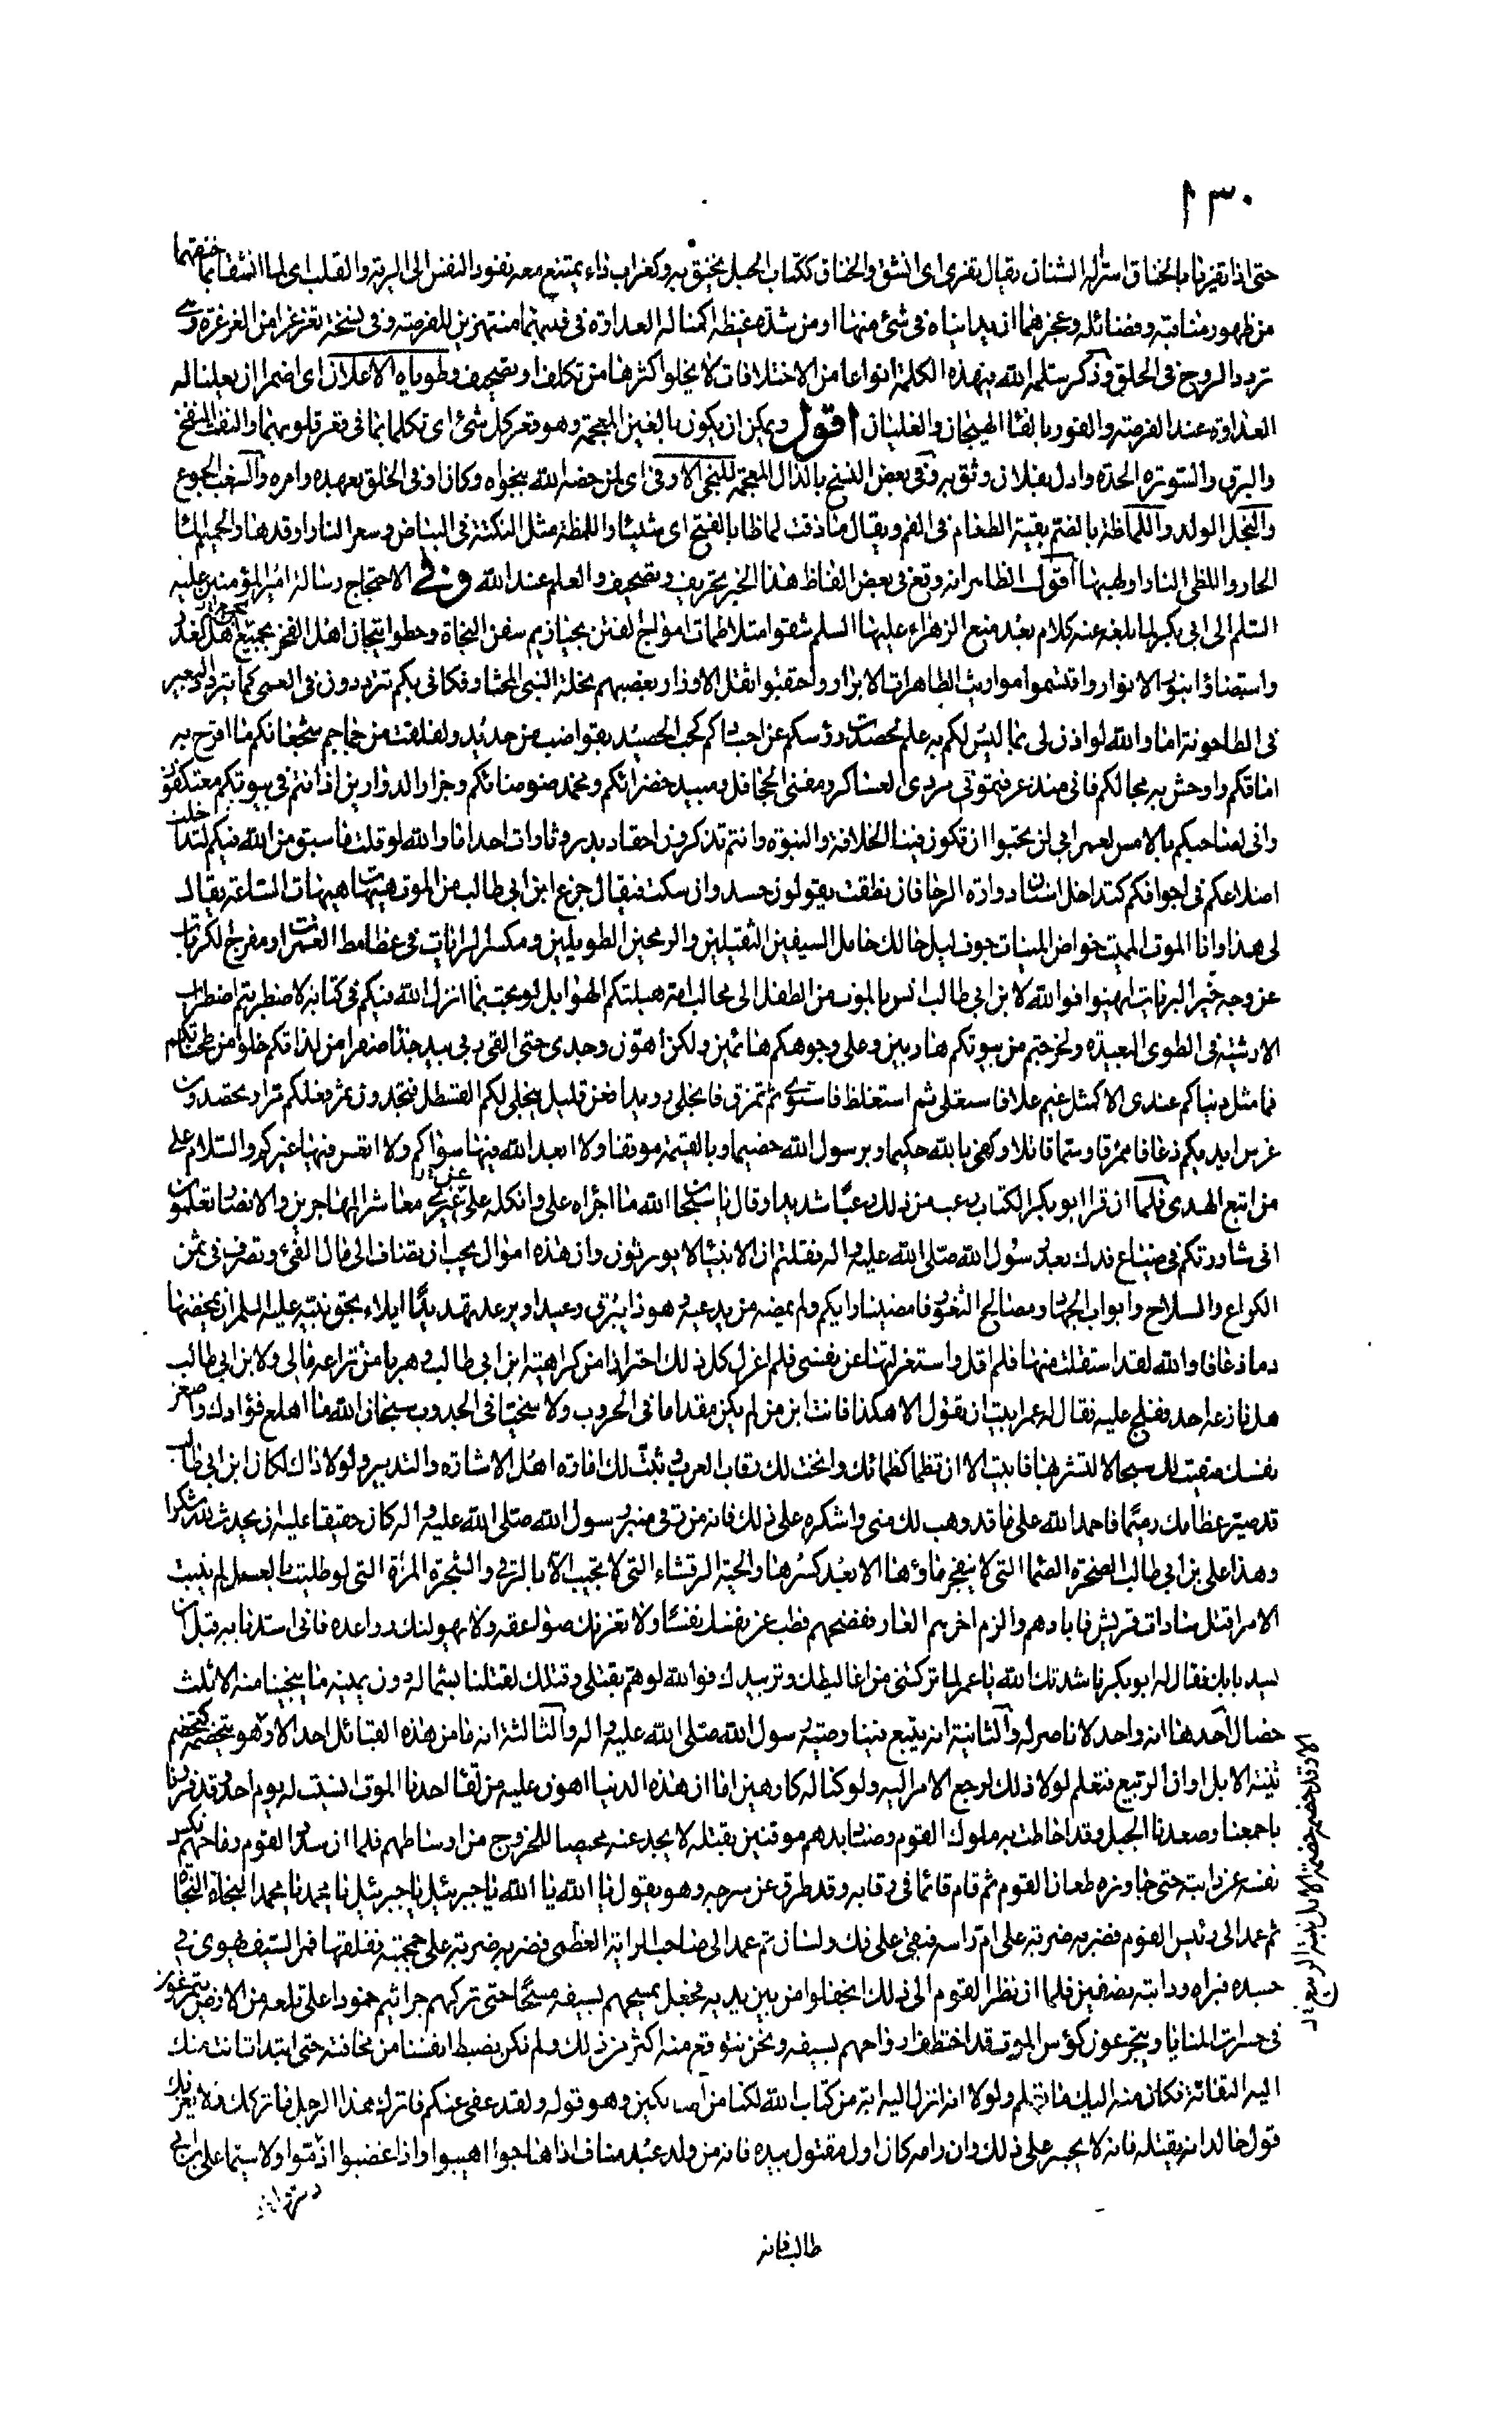 ١٣٠
حتى اذا تفرنا بالخناق اسر له الشنان يقال تفرى اى انشق والخناق ككتاب الحبل يخنق به وكغراب داء يمتنع معه نفوذ النفس الى الرية والقلب اى لما انشقا بما خنقهما
من ظهور مناقبه وفضائله وعجزهما ان يدانياه فى شئ منها او من شدة غيظه اكمنا له العداوة فى قلبهما منتهزين للفرصة وفى نسخة تغرغرا من الغرغرة وهى
تردد الروح فى الحلق وذكر سلمه الله بهذه الكلمة انواعا من الاختلافات لا يخلوا كثرها من تكلف او تصحيف وطوياه الاعلان اى اضمرا ان يعلنا له
العداوة عند الفرصة والفور بالفاء الهيجان والغليان اقول ويمكن ان يكون بالغين المعجمة وهو قعر كل شئ اى تكلما بما فى قعر قلوبهما والنفث النفخ
والبزق والسورة الحدة وادل بفلان وثق به وفى بعض النسخ بالذال المعجمة للنجى الاوفى اى لمن خصه الله بنجواه وكان اوفى الخلق بعهده وامره والسغب الجوع
والنجل الولد واللماظة بالضم بقية الطعام فى الفم ويقال ما ذقت لماظا بالفتح اى شيئا واللمظة مثل النكتة فى البياض وسعر النار اوقدها والحميم الماء
الحار واللظى النار او لهبها اقول الظاهر انه وقع فى بعض الفاظ هذا الخبر تحريف وتصحيف والعلم عند الله وفى الاحتجاج رسالة امير المؤمنين عليه
السلم الى ابى بكر لما بلغه عنه كلام بعد منع الزهراء عليها السلم شقوا متلاطمات امواج الفتن بحيازيم سفن النجاة وحطوا تيجان اهل الفخر بجميع اهل الغدر
واستضاؤا بنور الانوار واقتسموا مواريث الطاهرات الابرار واحتقبوا ثقل الاوزار بغصبهم نحلة النبى المختار فكانى بكم تترددون فى العمى كما يتردد البعير
فى الطاحونة اما والله لو اذن لى بما ليس لكم به علم لحصدت رؤسكم عن اجسادكم كحب الحصيد بقواضب من حديد ولفلقت من جماجم شجعانكم ما اقرح به
اماقكم واوحش به محالكم فانى منذ عرفتمونى مردى العساكر ومفنى الجحافل ومبيد خضرائكم ومخمد ضوضائكم وجزار الدوارين اذ انتم فى بيوتكم معتكفون
وانى لصاحبكم بالامس لعمر ابى لن تحبوا ان تكون فينا الخلافة والنبوة وانتم تذكرون احقاد بدر وثارات احد اما والله لو قلت ما سبق من الله فيكم لتداخلت
اضلاعكم فى اجوافكم كتداخل اسنان دوارة الرحا فان نطقت يقولون حسد وان سكت فيقال جزع ابن ابى طالب من الموت هيهات هيهات الساعة يقال
لى هذا وانا الموت المميت خواض المنيات جوف ليل خالك حامل السيفين الثقيلين والرمحين الطويلين ومكسر الرايات فى غطامط الغمرات ومفرج الكربات
عن وجه خير البريات ايهنوا فوالله لابن ابى طالب انس بالموت من الطفل الى محالب امه هبلتكم الهوابل لو بحت بما انزل الله فيكم فى كتابه لاضطربتم اضطراب
الارشية فى الطوى البعيدة ولخرجتم من بيوتكم هاربين وعلى وجوهكم هائمين ولكن اهون وجدى حتى القى ربى بيد جذاء صفرا من لذاتكم خلوا من طحناتكم
فما مثل دنياكم عندى الا كمثل غيم علا فاستعلى ثم استغلظ فاستوى ثم تمزق فانجلى رويدا فعن قليل ينجلى لكم القسطل فتجدون ثمر فعلكم مرا وتحصدون
غرس ايديكم ذعافا ممزقا وسما قاتلا وكفى بالله حكيما وبرسول الله خصيما وبالقيمة موقفا ولا ابعد الله فيها سواكم ولا اتعس فيها غيركم والسلام على
من اتبع الهدى فلما ان قرا ابو بكر الكتاب رعب من ذلك رعبا شديدا وقال يا سبحان الله ما اجراه على وانكله على غيرى معاشر المهاجرين والانصار تعلمون
انى شاورتكم فى ضياع فدك بعد رسول الله صلى الله عليه واله فقلتم ان الانبياء لا يورثون وان هذه اموال يجب ان تضاف الى مال الفئ وتصرف فى ثمن
الكراع والسلاح وابواب الجهاد ومصالح الثغور فامضينا رايكم ولم يمضه من يدعيه وهو ذا يبرق وعيدا ويرعد تهديدا ايلاء بحق نبيه عليه السلم ان يمضخها
دما ذعافا والله لقد استقلت منها فلم اقل واستعزلتها عن نفسى فلم اعزل كل ذلك احترازا من كراهية ابن ابى طالب وهربا من نزاعه مالى ولابن ابى طالب
هل نازعه احد ففلج عليه فقال له عمر ابيت ان تقول الا هكذا فانت ابن من لم يكن مقداما فى الحروب ولا سخيا فى الجدوب سبحان الله ما اهلع فؤادك واصغر
نفسك صفيت لك سجالا لتشربها فابيت الا ان تظما كظمائك وانخت لك رقاب العرب وثبت لك امارة اهل الاشارة والتدبير ولولا ذاك لكان ابن ابى طالب
قد صير عظامك رميما فاحمد الله على ما قد وهب لك منى واشكره على ذلك فانه من رقى منبر رسول الله صلى الله عليه واله كان حقيقا عليه ان يحدث لله شكرا
وهذا على بن ابى طالب الصخرة الصماء التى لا ينفجر ماؤها الا بعد كسرها والحية الرقشاء التى لا تجيب الا بالرقى والشجرة المرة التى لو طليت بالعسل لم ينبت
الا مرا قتل سادات قريش فابادهم والزم اخرهم العار ففضحهم فطب عن نفسك نفسا ولا تغرنك صواعقه ولا يهولنك رواعده فانى اسد بابه قبل ان
يسد بابك فقال له ابو بكر ناشدتك الله يا عمر لما تركتنى من اغاليطك وتربيدك فوالله لو هم بقتلى وقتلك لقتلنا بشماله دون يمينه ما ينجينا منه الا ثلث
خصال احدها انه واحد لا ناصر له والثانية انه يتبع فينا وصية رسول الله صلى الله عليه واله والثالثة انه ما من هذه القبائل احد الا وهو يتخضمه كتخضم
ثنية الابل اوان الربيع فتعلم لولا ذلك لرجع الامر اليه ولو كنا له كارهين اما ان هذه الدنيا اهون عليه من لقاء احدنا الموت انسيت له يوم احد وقد فررنا
باجمعنا وصعدنا الجبل وقد احاطت به ملوك القوم وصناديدهم موقنين بقتله لا يجد عنه محيصا للخروج من اوساطهم فلما ان سدد القوم رماحهم نكس
نفسه عن دابته حتى جاوزه طعان القوم ثم قام قائما فى ركابه وقد طرق عن سرجه وهو يقول يا الله يا الله يا جبرئيل يا جبرئيل يا محمد يا محمد النجاة النجاة
ثم عمد الى رئيس القوم فضربه ضربة على ام راسه فبقى على فك ولسان ثم عمد الى صاحب الراية العظمى فضربه ضربة على جمجمته ففلقها فمر السيف يهوى فى
جسده فبراه ودابته نصفين فلما ان نظر القوم الى ذلك انجفلوا من بين يديه فجعل يمسحهم بسيفه مسحا حتى تركهم جراثيم خمودا على تلعة من الارض يتمرغون
فى حسرات المنايا ويتجرعون كؤس الموت قد اختطف ارواحهم بسيفه ونحن نتوقع منه اكثر من ذلك ولم نكن نضبط انفسنا من مخافته حتى ابتدات انت منك
اليه التفاتة فكان منه اليك ما تعلم ولولا انه انزل اليه اية من كتاب الله لكنا من الهالكين وهو قوله ولقد عفى عنكم فاترك هذا الرجل ما تركك فلا يغرنك
قول خالد انه يقتله فانه لا يجسر على ذلك وان رامه كان اول مقتول بيده فانه من ولد عبد مناف اذا هاجوا اهيبوا واذا غضبوا اذموا ولا سيما على بن ابى
طالب فانه